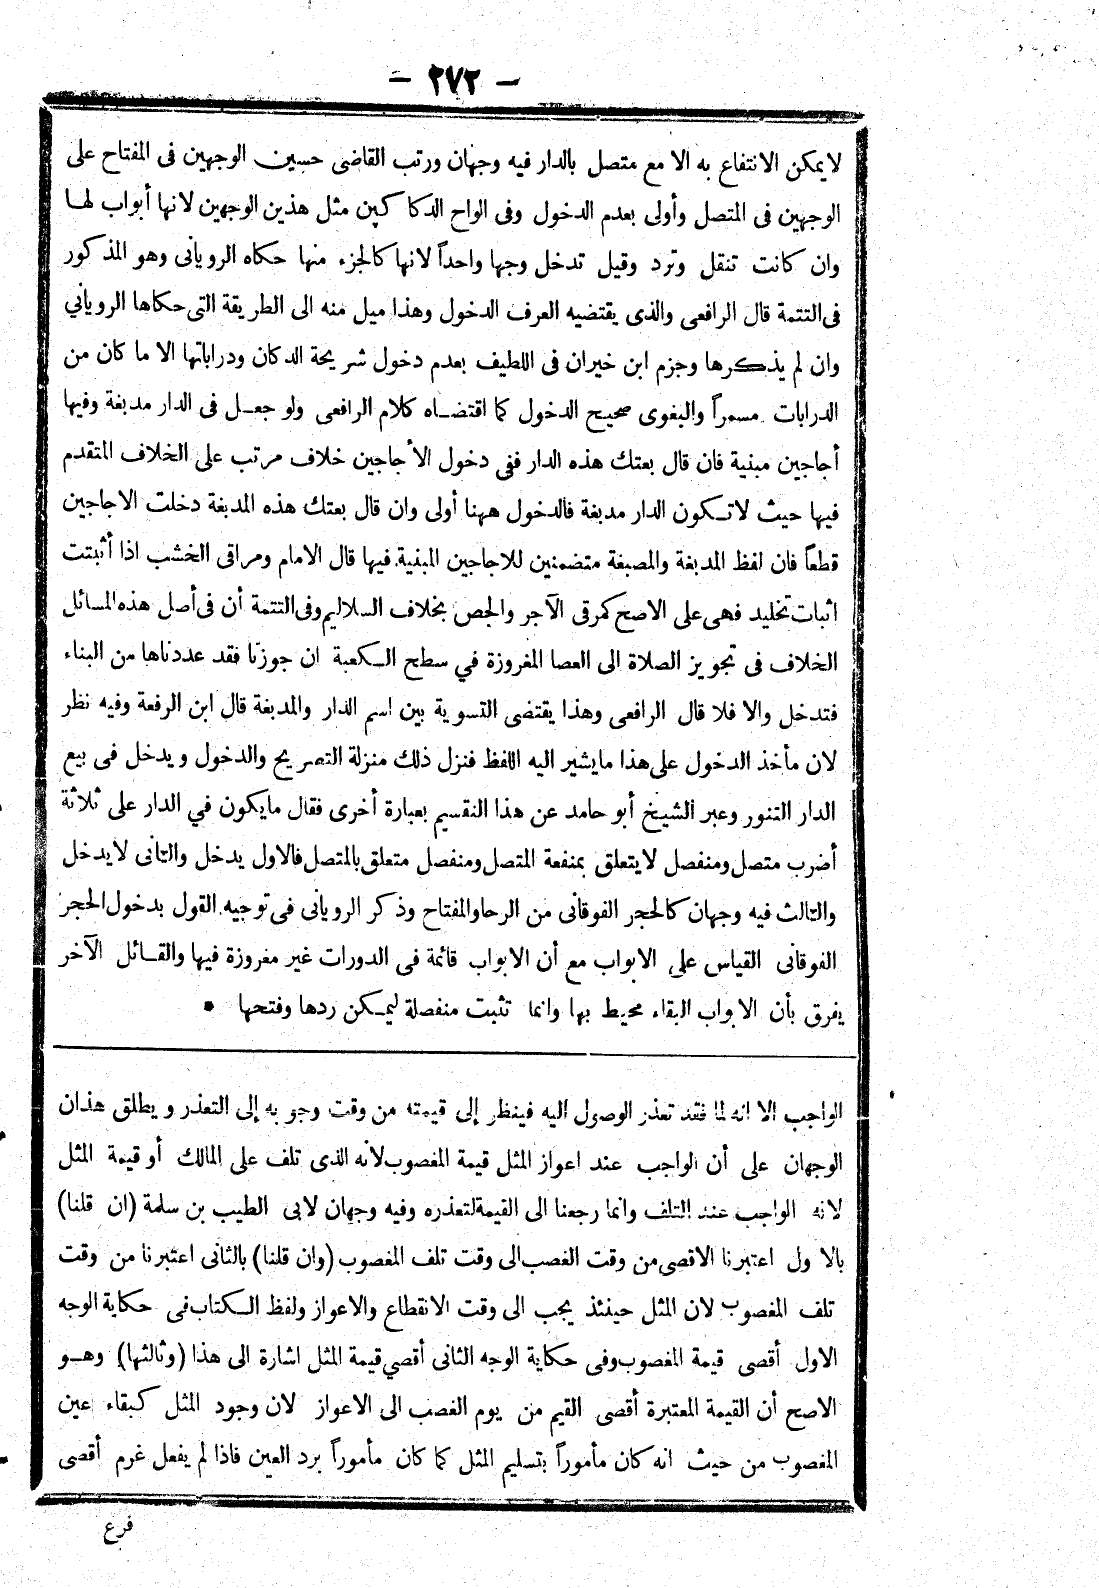 — ٢٧٢ —
لايمكن الانتفاع به الا مع متصل بالدار فيه وجهان ورتب القاضى حسين الوجهين فى المفتاح على
الوجهين فى المتصل وأولى بعدم الدخول وفى الواح الدكاكين مثل هذين الوجهين لانها أبواب لها
وان كانت تنقل وترد وقيل تدخل وجها واحداً لانها كالجزء منها حكاه الرويانى وهو المذكور
فى التتمة قال الرافعى والذى يقتضيه العرف الدخول وهذا ميل منه الى الطريقة التى حكاها الروياني
وان لم يذكرها وجزم ابن خيران فى اللطيف بعدم دخول شريحة الدكان ودراباتها الا ما كان من
الدرابات مسمراً والبغوى صحيح الدخول كما اقتضاه كلام الرافعى ولو جعل فى الدار مدبغة وفيها
أجاجين مبنية فان قال بعتك هذه الدار ففى دخول الأجاجين خلاف مرتب على الخلاف المتقدم
فيها حيث لاتكون الدار مدبغة فالدخول ههنا أولى وان قال بعتك هذه المدبغة دخلت الاجاجين
قطعاً فان لفظ المدبغة والمصبغة متضمنين للاجاجين المبنية فيها قال الامام ومراقى الخشب اذا أثبتت
اثبات تخليد فهى على الاصح كمرقى الآجر والجص بخلاف السلاليم وفى التتمة أن فى أصل هذه المسائل
الخلاف فى تجويز الصلاة الى العصا المغروزة في سطح الكعبة ان جوزنا فقد عددناها من البناء
فتدخل والا فلا قال الرافعى وهذا يقتضى التسوية بين اسم الدار والمدبغة قال ابن الرفعة وفيه نظر
لان مأخذ الدخول على هذا مايشير اليه اللفظ فنزل ذلك منزلة التصريح والدخول ويدخل فى بيع
الدار التنور وعبر الشيخ أبو حامد عن هذا التقسيم بعبارة أخرى فقال مايكون في الدار على ثلاثة
أضرب متصل ومنفصل لايتعلق بمنفعة المتصل ومنفصل متعلق بالمتصل فالاول يدخل والثانى لايدخل
والثالث فيه وجهان كالحجر الفوقانى من الرحا والمفتاح وذكر الرويانى فى توجيه القول بدخول الحجر
الفوقانى القياس على الابواب مع أن الابواب قائمة فى الدورات غير مغروزة فيها والقائل الآخر
يفرق بأن الابواب البقاء محيط بها وانما تثبت منفصلة ليمكن ردها وفتحها •
الواجب الا انه لما فقد تعذر الوصول اليه فينظر إلى قيمته من وقت وجوبه إلى التعذر ويطلق هذان
الوجهان على أن الواجب عند اعواز المثل قيمة المغصوب لأنه الذى تلف على المالك أو قيمة المثل
لانه الواجب عند التلف وانما رجعنا الى القيمة لتعذره وفيه وجهان لابى الطيب بن سلمة (ان قلنا)
بالاول اعتبرنا الاقصى من وقت الغصب الى وقت تلف المغصوب (وان قلنا) بالثانى اعتبرنا من وقت
تلف المغصوب لان المثل حينئذ يجب الى وقت الانقطاع والاعواز ولفظ الكتاب فى حكاية الوجه
الاول أقصى قيمة المغصوب وفى حكاية الوجه الثانى أقصي قيمة المثل اشارة الى هذا (وثالثها) وهو
الاصح أن القيمة المعتبرة أقصى القيم من يوم الغصب الى الاعواز لان وجود المثل كبقاء عين
المغصوب من حيث انه كان مأموراً بتسليم المثل كما كان مأموراً برد العين فاذا لم يفعل غرم أقصى
فرع